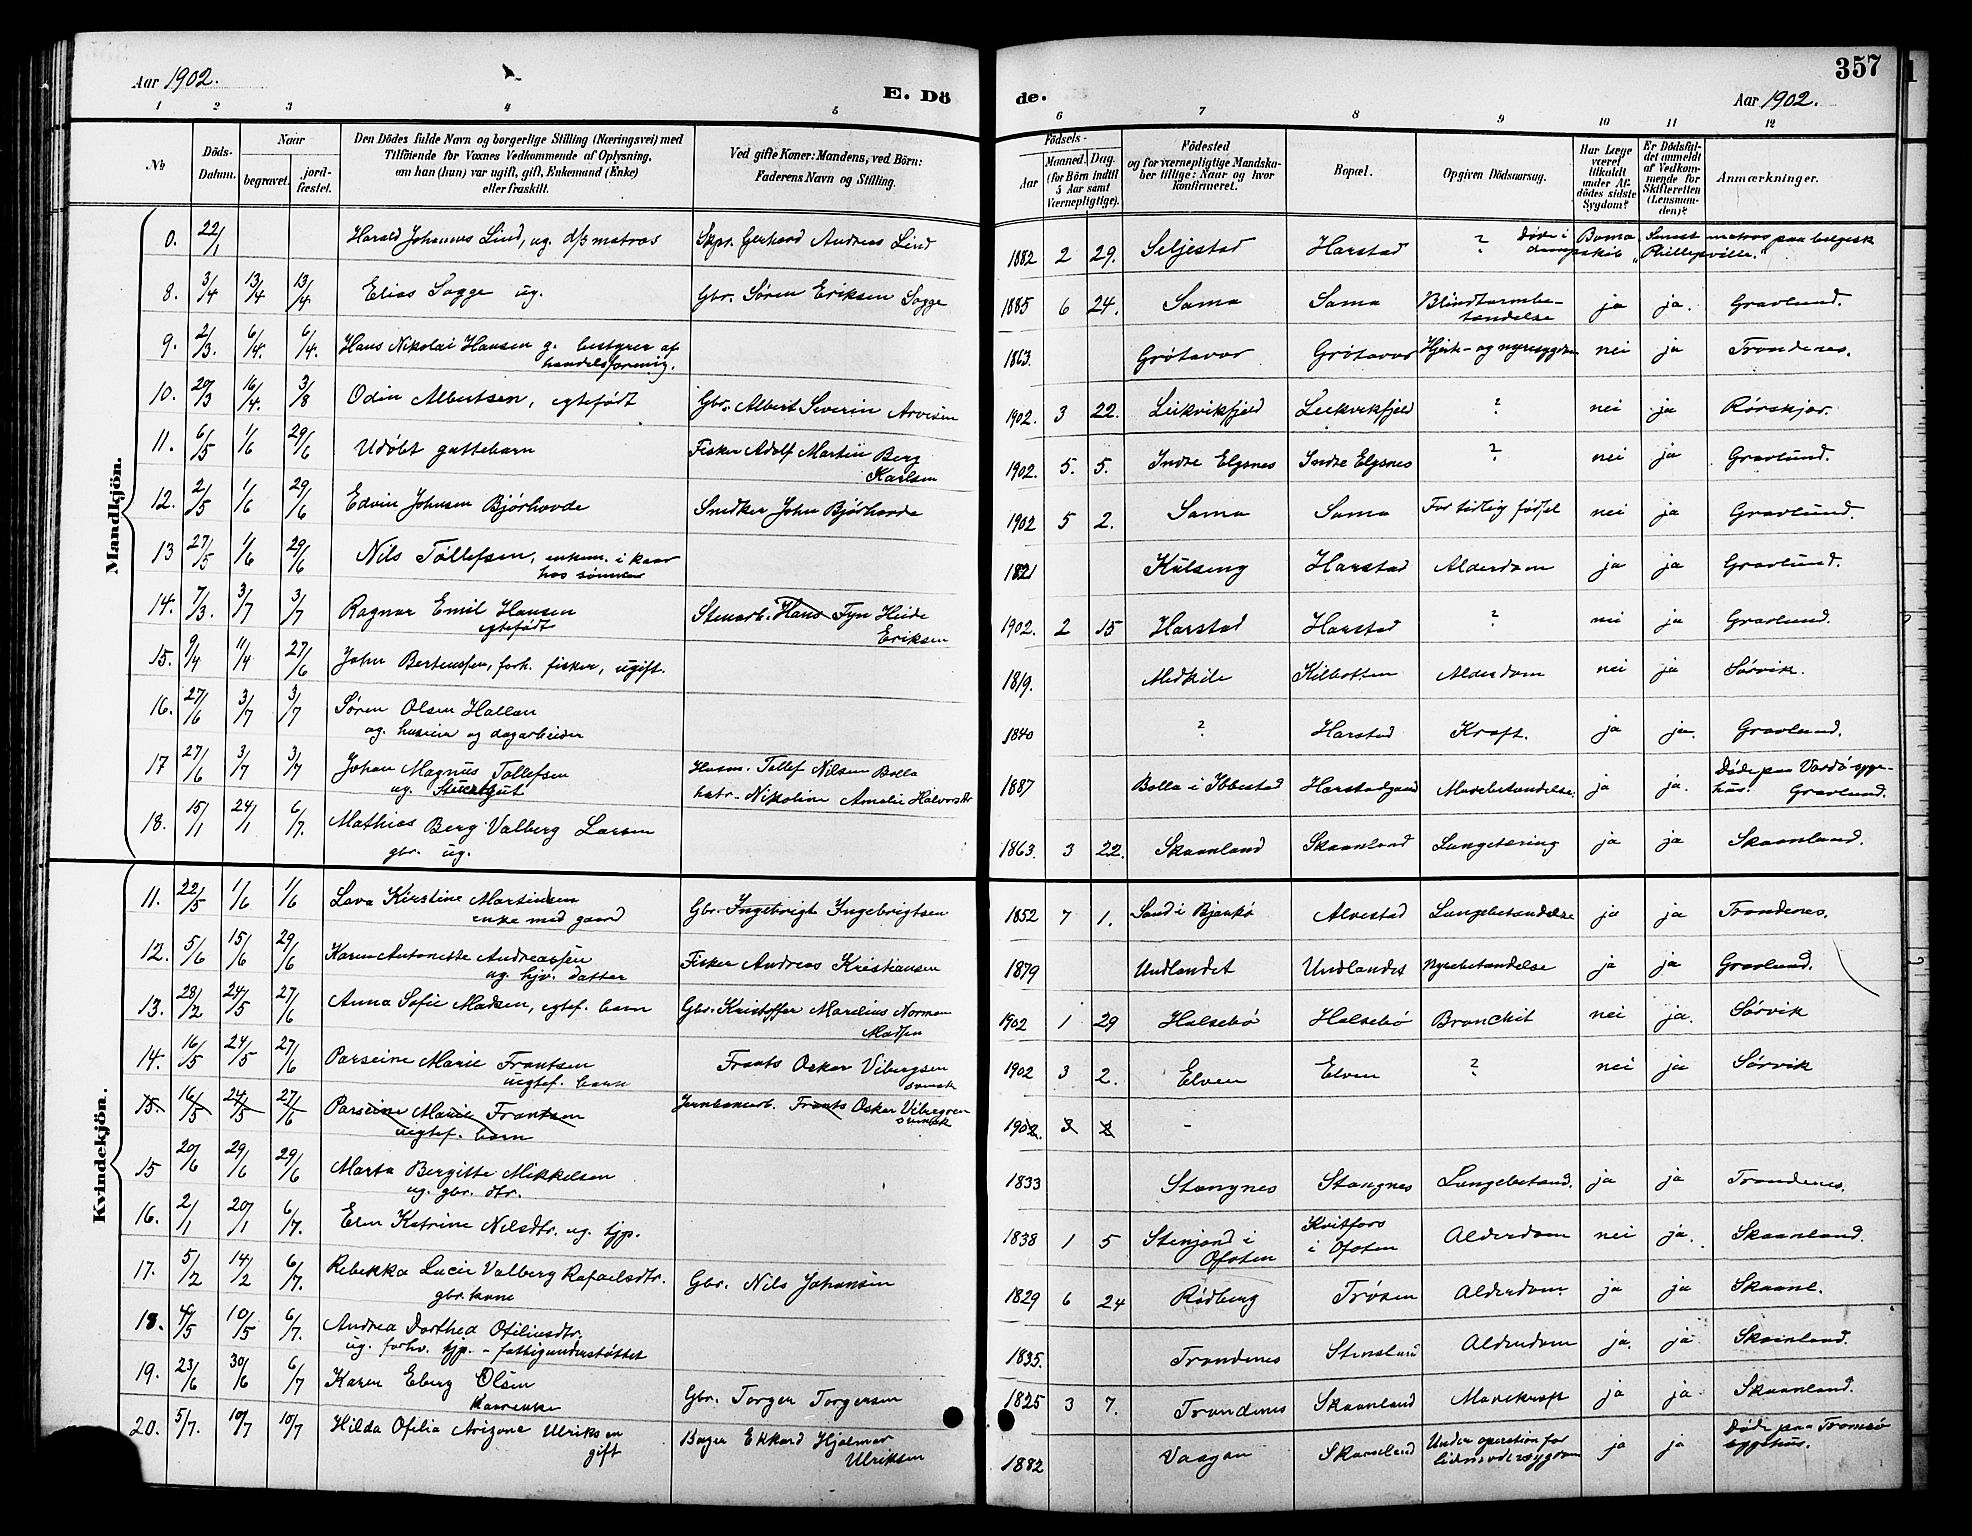 Aar 1902.
E. Dö
de.
Aar 1902.
357
1 2 3 4 5 6 7 8 9 10 11 12
No
Döds-Datum.
Naar
begravet.
jord-fæstet.
Den Dödes fulde Navn og borgerlige Stilling (Næringsvei) med
Tilföiende for Voxnes Vedkommende af Oplysning,
om han (hun) var ugift, gift, Enkemand (Enke)
eller fraskilt.
Ved gifte Koner: Mandens, ved Börn:
Faderens Navn og Stilling.
Födsels-
Aar
Maaned. Dag.
(for Börn indtil
5 Aar samt
Værnepligtige).
Födested
og for værnepligtige Mandska-
ber tillige: Naar og hvor
konfirmeret.
Bopæl.
Opgiven Dödsaarsag.
Har Læge
været
tilkaldt
under Af-
dödes sidste
Sygdom?
Er Dödsfal-
det anmeldt
af Vedkom-
mende for
Skifteretten
(Lensman-
den)?
Anmærkninger.
Mandkjön.
0. 22/1 Harald Johannes Lind, ug. d/s matros Skpr. Gerhard Andreas Lind 1882 2 29. Seljestad Harstad ? Döde i Boma Smart matros paa belgisk
dampskib "Phillipville."
8. 3/4 13/4 13/4 Elias Sagge ug. Gbr. Søren Eriksen Sagge 1885 6 24. Sama Sama Blindtarmbe-
tændelse ja ja. Gravlund.
9. 2/3. 6/4. 6/4. Hans Nikolai Hansen g. bestyrer af
handelsforenig. 1863. Grøtavær Grøtavær Hjerte- og nyresygdom nei ja Trondenes.
10. 20/3 16/4. 3/8 Odin Albertsen, egtefødt Gbr. Albert Severin Arvesen 1902. 3 22. Leikvikfjeld Leikvikfjeld ? nei ja Rørskjær.
11. 6/5 1/6 29/6 Udøbt guttebarn Fisker Adolf Martin Berg
Karlsen 1902. 5. 5. Indre Elgsnes Indre Elgsnes ? nei ja Gravlund.
12. 2/5 1/6 29/6 Edvin Johnsen Bjørhovde Snedker John Bjørhovde 1902 5 2. Sama Sama For tidlig fødsel nei ja Gravlund.
13 27/5 1/6 29/6 Nils Tollefsen, enkem. i kaar
hos sønnen 1821 Kulseng Harstad Alderdom ja ja Gravlund.
14. 7/3. 3/7 3/7 Ragnar Emil Hansen
egtefødt Stenarb. Hans Fyn Heide
Eriksen 1902. 2 15 Harstad Harstad ? nei ja Gravlund.
15. 9/4 11/4 27/6 John Bertenssen, forh. fisker, ugift. 1819. Medkile Kilbotten Alderdom nei ja Sørvik.
16. 27/6 3/7 3/7 Søren Olsen Hallan
ug. huseier og dagarbeider 1840 ? Harstad Kræft. ja ja. Gravlund.
17 27/6 3/7 3/7 Johan Magnus Tollefsen
ug. Stuertgut Husm. Tollef Nilsen Bolla
hstr. Nikoline Amalie Halvorsdtr 1887 Bolla i Ibbestad Harstadgaard Mavebetændelse. ja ja. Døde paa Vardø syge-
hus. Gravlund.
18. 15/1 24/1 6/7. Mathias Berg Valberg Larsen
gbr. ug. 1863. 3 22. Skaanland Skaanland Lungetæring ja ja Skaanland.
Kvindekjön.
11. 22/5 1/6 1/6 Lava Kirstine Martinsen
enke med gaard Gbr. Ingebrigt Ingebrigtsen 1852 7 1. Sand i Bjarkø Alvestad Lungebetændelse ja ja Trondenes.
12. 5/6 15/6 29/6 Karen Antonette Andreassen
ug. hjv. datter Fisker Andreas Kristiansen 1879 Undlandet Undlandet Nyrebetændelse ja ja Gravlund.
13. 28/2 24/5 27/6 Anna Sofie Madsen, egtef. barn Gbr. Kristoffer Marelius Norman
Madsen 1902 1 29 Halsebø Halsebø Bronchit nei ja. Sørvik
14. 16/5 24/5 27/6 Parseine Marie Frantsen
uegtef. barn Frants Oskar Vibergsen
svensk 1902 3 2. Elven Elven ? nei ja Sørvik
15 16/5 24/5 27/6 Parseine Marie Frantsen
uegtef. barn Jernbanearb. Frants Oskar Vibegren
svensk 1902. 3 2 -
15 20/6 29/6 29/6 Marta Bergitte Mikkelsen
ug. gbr. dtr. 1833 Stangnes Stangnes Lungebetænd. ja ja Trondenes.
16. 2/1 20/1 6/7. Elen Katrine Nilsdtr. ug. tjp. 1838 1 5 Stenjord i
Ofoten Kvitfors
i Ofoten Alderdom nei ja. Skaanland.
17. 5/2 14/2 6/7. Rebekka Lucie Valberg Rafaelsdtr.
gbr. kone Gbr. Nils Johansen 1829 6 24 Rødberg Trøsen Alderdom ja ja Skaanl.
18. 4/5 10/5 6/7. Andrea Dorthea Ofeliusdtr.
ug. forhv. tjp. - fattigunderstøttet 1835. Trondenes Stensland Alderdom ja. ja Skaanland.
19. 23/6 30/6 6/7 Karen Eberg Olsen
kaarenke Gbr. Torger Torgersen 1825 3 7. Trondenes Skaanland Mavekræft ja ja Skaanland.
20. 5/7. 10/7 10/7 Hilda Ofelia Arizone Ulriksen
gift Bager Ekkard Hjalmar
Ulriksen 1882 Vaagan Skaanland Under operation for
ja ja Døde paa Tromsø
sygehus.